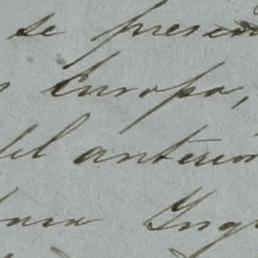 se presen
Europa,
del anterior
Ing